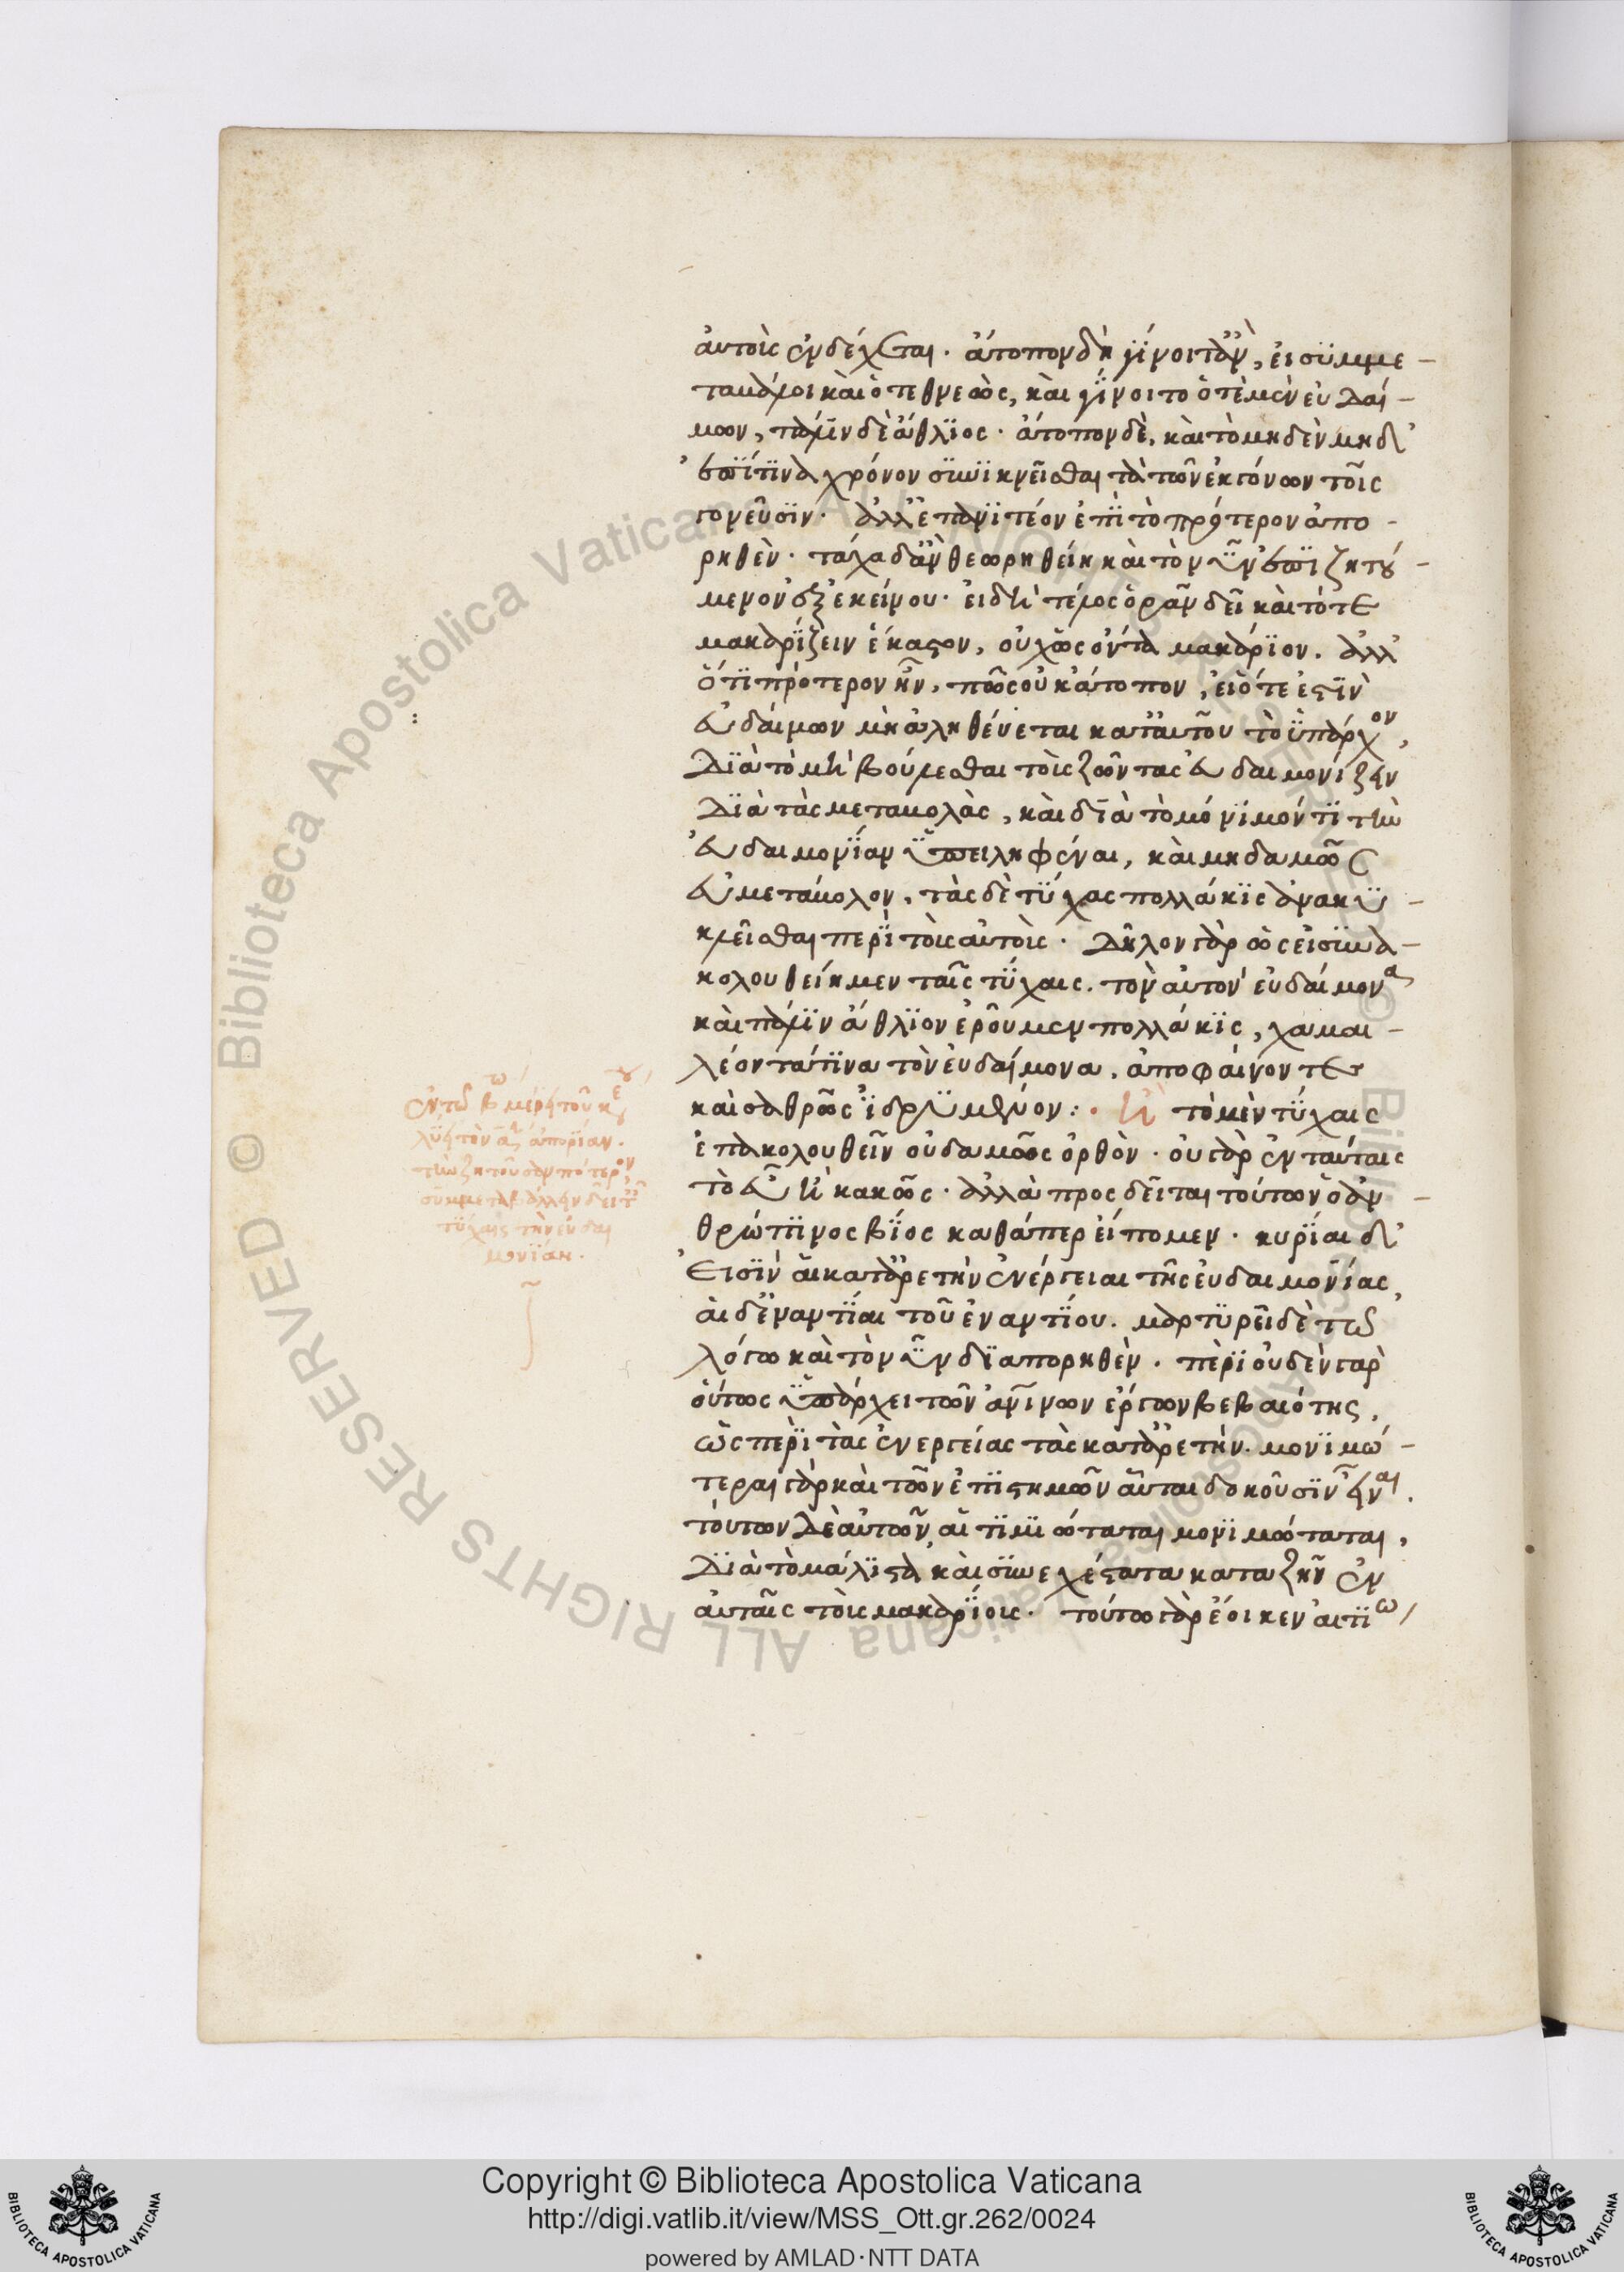 αὐτοῖς ἐνδέχεται· ἄτοπον δὴ γίνοιτ' ἂν, εἰ συμμε-
ταβάλλοι καὶ ὁ τεθνεὼς, καὶ γίνοιτο ὁτὲ μὲν εὐδαί-
μων, πάλιν δὲ ἄθλιος· ἄτοπον δὲ, καὶ τὸ μηδὲν μηδ'
ἐπί τινα χρόνον συνικνεῖσθαι τὰ τῶν ἐκγόνων τοῖς
γονεῦσιν· ἀλλ' ἐπανιτέον ἐπὶ τὸ πρότερον ἀπο-
ρηθὲν· τάχα δ' ἂν θεωρηθείη καὶ τὸ νῦν ἐπιζητού-
μενον ἐξ ἐκείνου· εἰ δὴ τέλος ὁρᾶν δεῖ καὶ τότε
μακαρίζειν ἕκαστον, οὐχ ὡς ὄντα μακάριον. ἀλλ'
ὅτι πρότερον ἦν, πῶς οὐκ ἄτοπον, εἰ ὅτε ἐστὶν
εὐδαίμων μὴ ἀληθεύεται κατ' αὐτοῦ τὸ ὑπάρχον,
διὰ τὸ μὴ βούλεσθαι τοὺς ζῶντας εὐδαιμονίζειν
διὰ τὰς μεταβολὰς, καὶ διὰ τὸ μόνιμόν τι τὴν
εὐδαιμονίαν ὑπειληφέναι, καὶ μηδαμῶς
εὐμετάβολον, τὰς δὲ τύχας πολλάκις ἀνακυ-
κλεῖσθαι περὶ τοὺς αὐτοὺς· δῆλον γὰρ ὡς εἰ συνα-
κολουθείημεν ταῖς τύχαις. τὸν αὐτὸν εὐδαίμονα
καὶ πάλιν ἄθλιον ἐροῦμεν πολλάκις, χαμαι-
λέοντά τινα τὸν εὐδαίμονα, ἀποφαίνοντες
καὶ σαθρῶς ἱδρυμένον:· ἢ τὸ μὲν τύχαις
ἐπακολουθεῖν οὐδαμῶς ὀρθὸν· οὐ γὰρ ἐν ταύταις
τὸ εὖ ἢ κακῶς· ἀλλὰ προσδεῖται τούτων ὁ ἀν-
θρώπινος βίος καθάπερ εἴπομεν· κυρίαι δ'
εἰσὶν αἱ κατ' ἀρετὴν ἐνέργειαι τῆς εὐδαιμονίας,
αἱ δ' ἐναντίαι τοῦ ἐναντίου. μαρτυρεῖ δὲ τῷ
λόγω καὶ τὸ νῦν διαπορηθὲν. περὶ οὐδὲν γὰρ
οὕτως ὑπάρχει τῶν ἀνθρωπίνων ἔργων βεβαιότης,
ὡς περὶ τὰς ἐνεργείας τὰς κατ' ἀρετὴν. μονιμώ-
τεραι γὰρ καὶ τῶν ἐπιστημῶν αὗται δοκοῦσιν εἶναι.
τούτων δὲ αὐτῶν, αἱ τιμιώταται μονιμώταται,
διὰ τὸ μάλιστα καὶ συνεχέστατα καταζῆν ἐν
αὐταῖς τοὺς μακαρίους· τούτω γὰρ ἔοικεν αἰτίω
ἐν τῷ β μέρει τοῦ
λύει τὴν α ἀπορίαν.
τὴν ζητοῦσαν πότερον
συμμεταβάλλειν δεῖ ταῖς
τύχαις τὴν εὐδαι
μονίαν.
Copyright © Biblioteca Apostolica Vaticana
http://digi.vatlib.it/view/MSS_Ott.gr.262/0024
powered by AMLAD·NTT DATA
BIBLIOTECA APOSTOLICA VATICANA
BIBLIOTECA APOSTOLICA VATICANA
Biblioteca Apostolica Vaticana ALL RIGHTS RESERVED ©